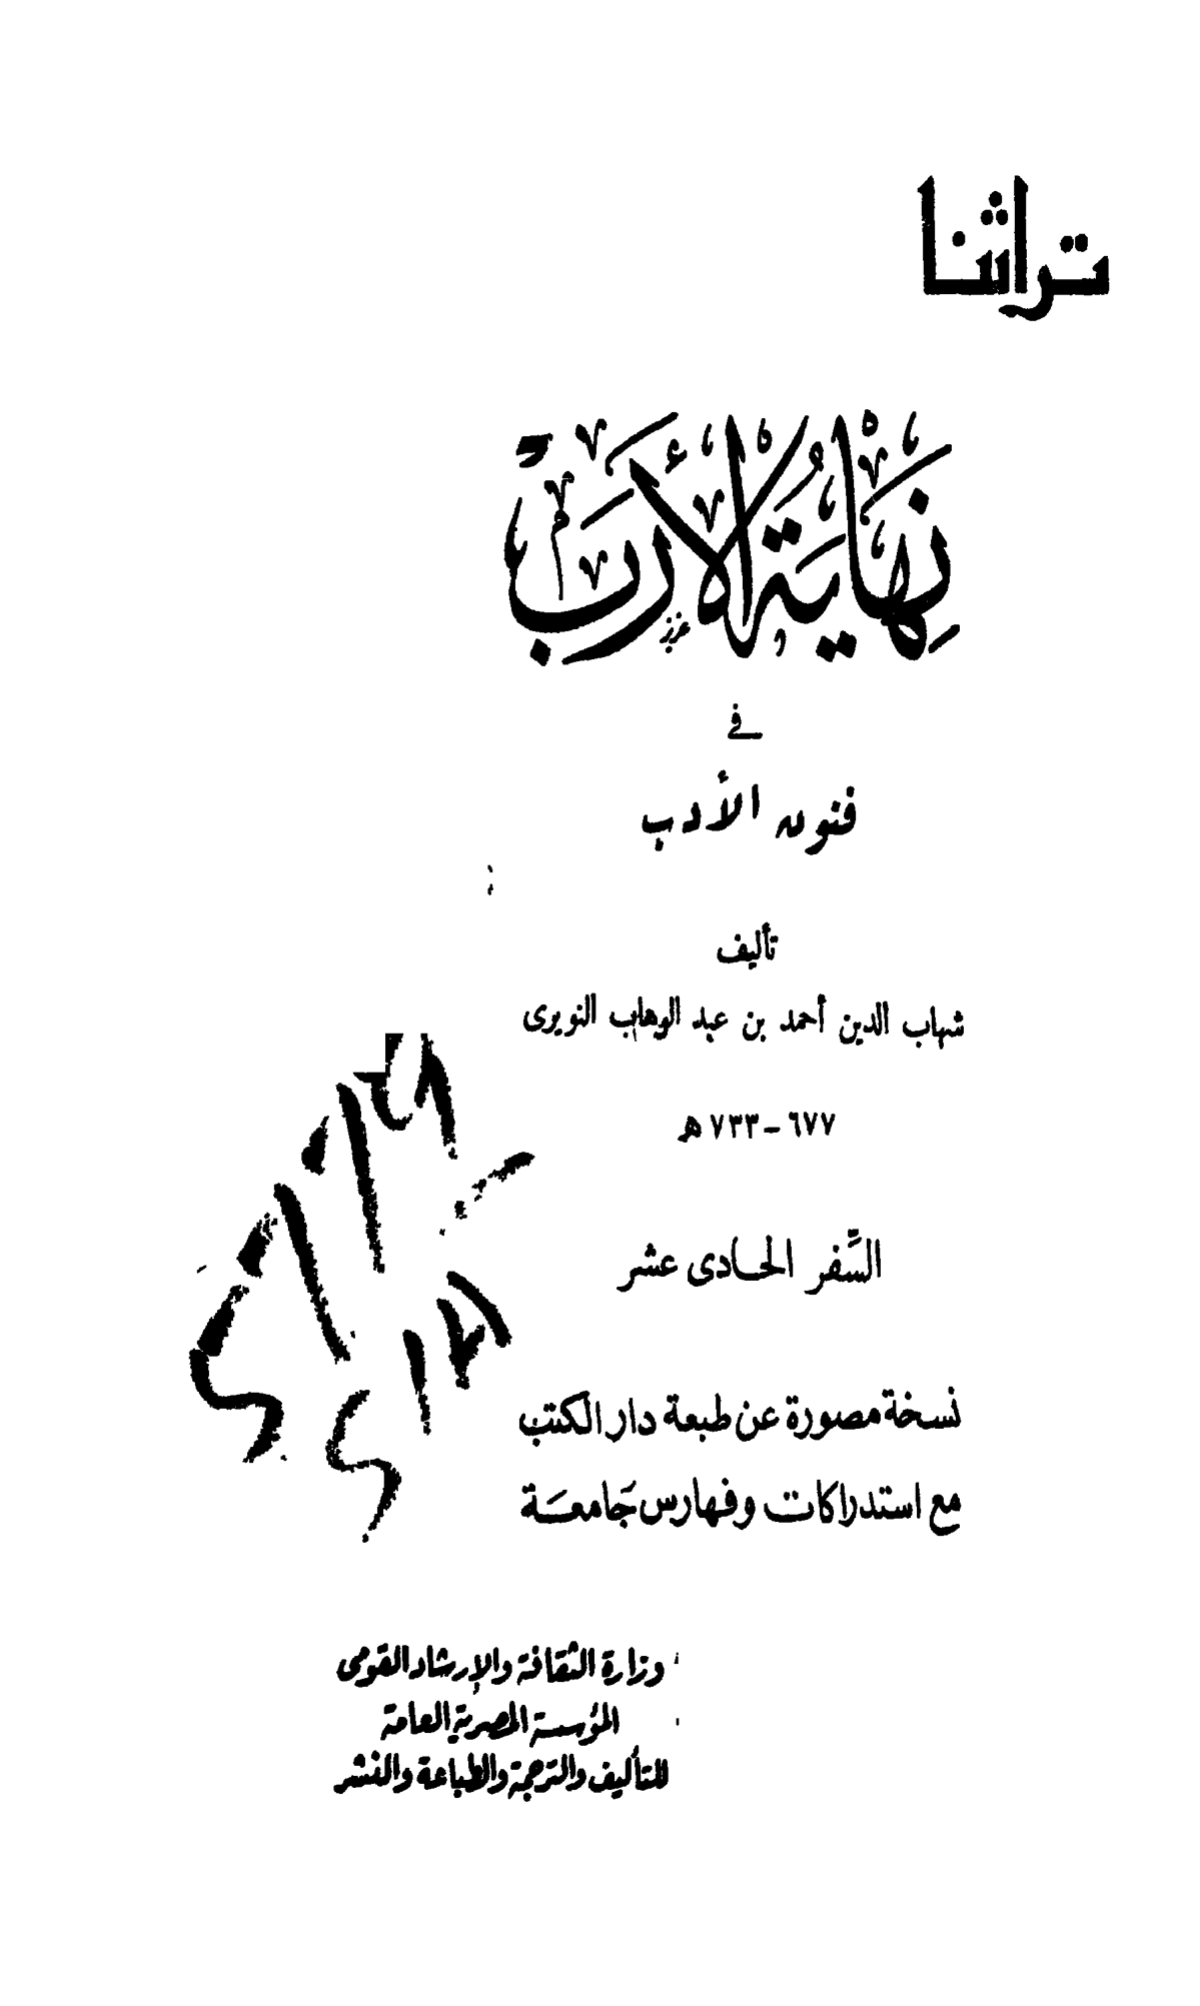 تراثنا
نِهَايَةُ الأَرَبْ
عزيز
في
فنون الأدب
تأليف
شهاب الدين أحمد بن عبد الوهاب النويرى
٦٧٧ – ٧٣٣ هـ
السِّفر الحادى عشر
نسخة مصورة عن طبعة دار الكتب
مع استدراكات وفهارس جَامعَة
وزارة الثقافة والإرشاد القومى
المؤسسة المصرية العامة
للتأليف والترجمة والطباعة والنشر